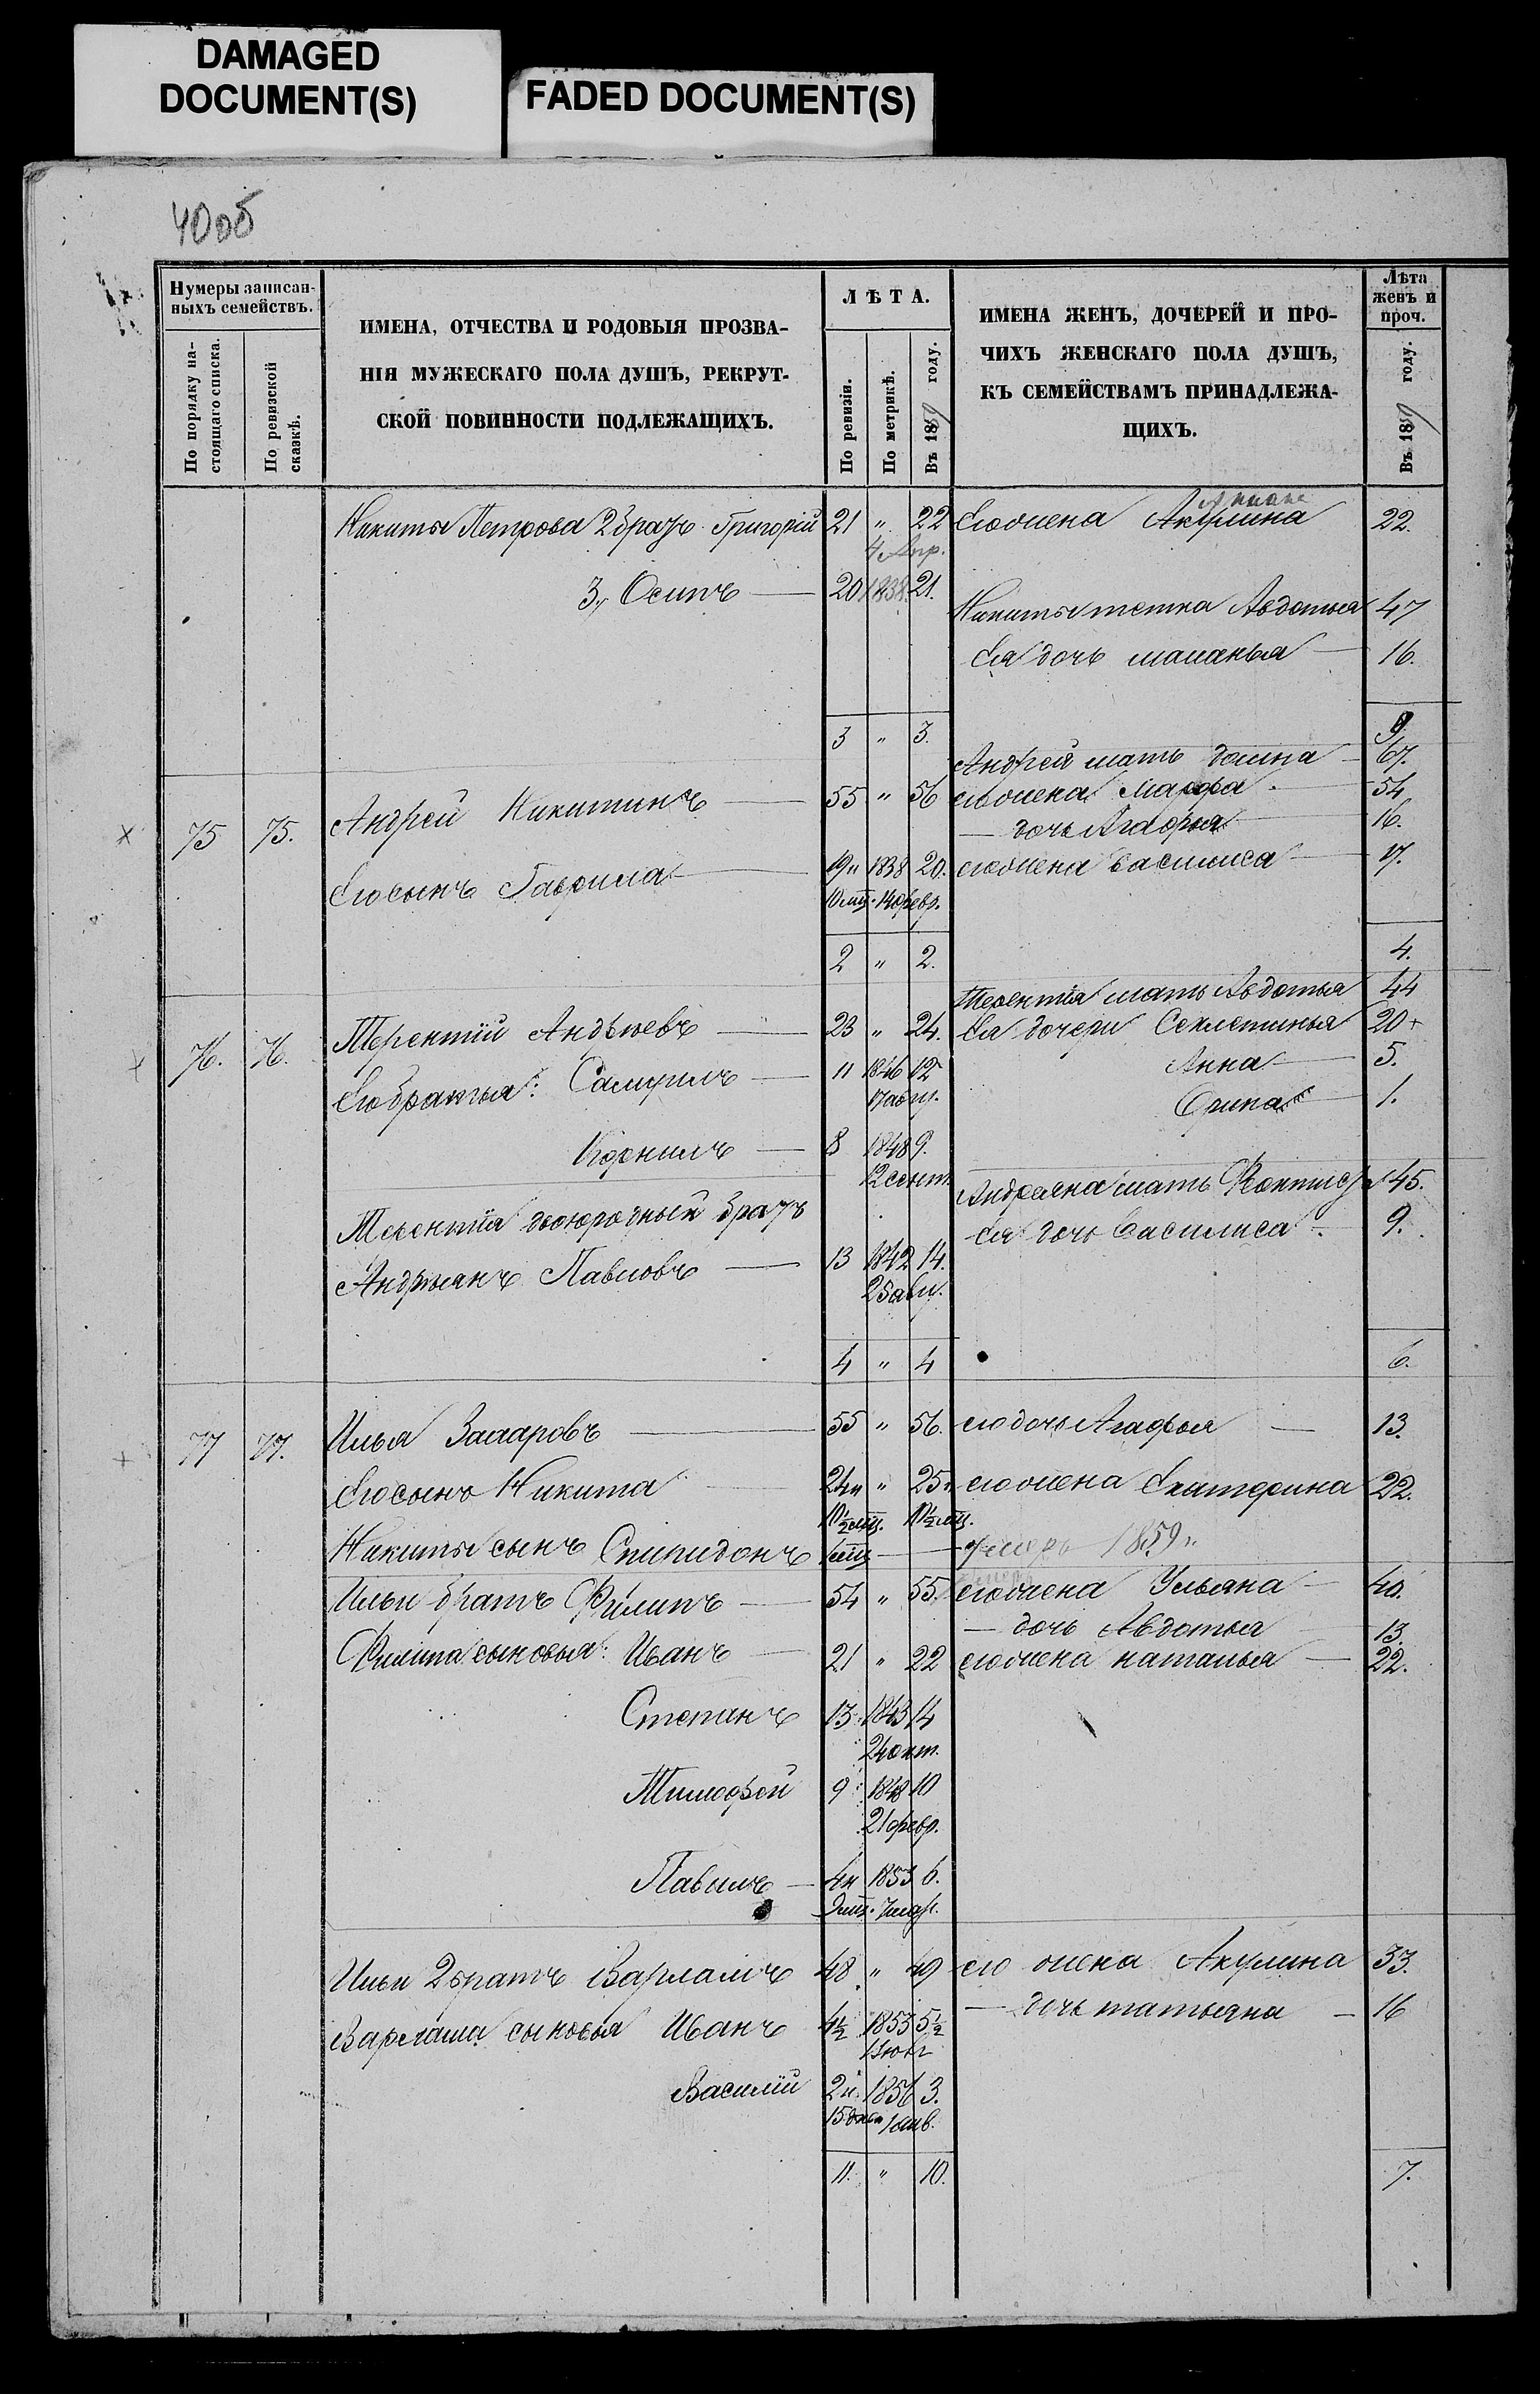 DAMAGED
DOCUMENT(S)
FADED DOCUMENT(S)
40об
Нумеры записан-
ныхъ семействъ.
По порядку на-
стоящаго списка.
По ревизской
сказкѣ.
ИМЕНА, ОТЧЕСТВА И РОДОВЫЯ ПРОЗВА-
НІЯ МУЖЕСКАГО ПОЛА ДУШЪ, РЕКРУТ-
СКОЙ ПОВИННОСТИ ПОДЛЕЖАЩИХЪ.
ЛѢТА.
По ревизіи.
По метрикѣ.
Въ 1859 году.
ИМЕНА ЖЕНЪ, ДОЧЕРЕЙ И ПРО-
ЧИХЪ ЖЕНСКАГО ПОЛА ДУШЪ,
КЪ СЕМЕЙСТВАМЪ ПРИНАДЛЕЖА-
ЩИХЪ.
Лѣта
женъ и
проч.
Въ 1859 году.
Никиты Петрова 2 братъ Григорій 21 " 22 Его жена Акулина 22.
4 Апр.
3, Осипъ 20 1838. 21.
Никиты тетка Авдотья 47
Ея дочь маланья 16.
3 " 3. 9.
Андрея мать домна 67.
75 75. Андрей Никитинъ 55 " 56 его жена Марфа 54
дочь Агафья 16.
Его сынъ Гаврила 19 " 1838 20. его жена василиса 17.
10 мц. 14 февр.
2 " 2. 4.
Терентія мать Авдотья 44
76. 76. Терентій Андреевъ 23 " 24. Ея дочери Секлетинья 20+
Его братья: Самуилъ 11 1846 12 Анна 5.
17 авг. Орина 1.
Корнилъ 8 1848 9.
12 сент.
Андреяна мать 45.
Терентія двоюродный братъ
Ея дочь Василиса 9.
Андреянъ Павловъ 13 1842 14.
25 авг.
4 " 4 6.
77 77. Илья Захаровъ 55 " 56. его дочь Агафья 13.
Его сынъ Никита 24 " 25 его жена Екатерина 22.
10½ мц. 10½ мц.
Никиты сынъ Спиридонъ умеръ 1859
Ильи братъ Филипъ 54 " 55. его жена Ульяна 40.
дочь Авдотья 13.
Филипа сыновья: Иванъ 21 " 22 его жена наталья 22.
Степанъ 13 1843 14
24 окт.
Тимофей 9 1848 10
21 февр.
Павилъ 4 1853 6.
9 мц. 7 мар.
Ильи 2 братъ Варламъ 48 " 49 его жена Акулина 33.
дочь татьяна 16
Варлама сыновья Иванъ 4½ 1853 5½
Василій 2 1856 3.
15 янв.
11. " 10. 7.